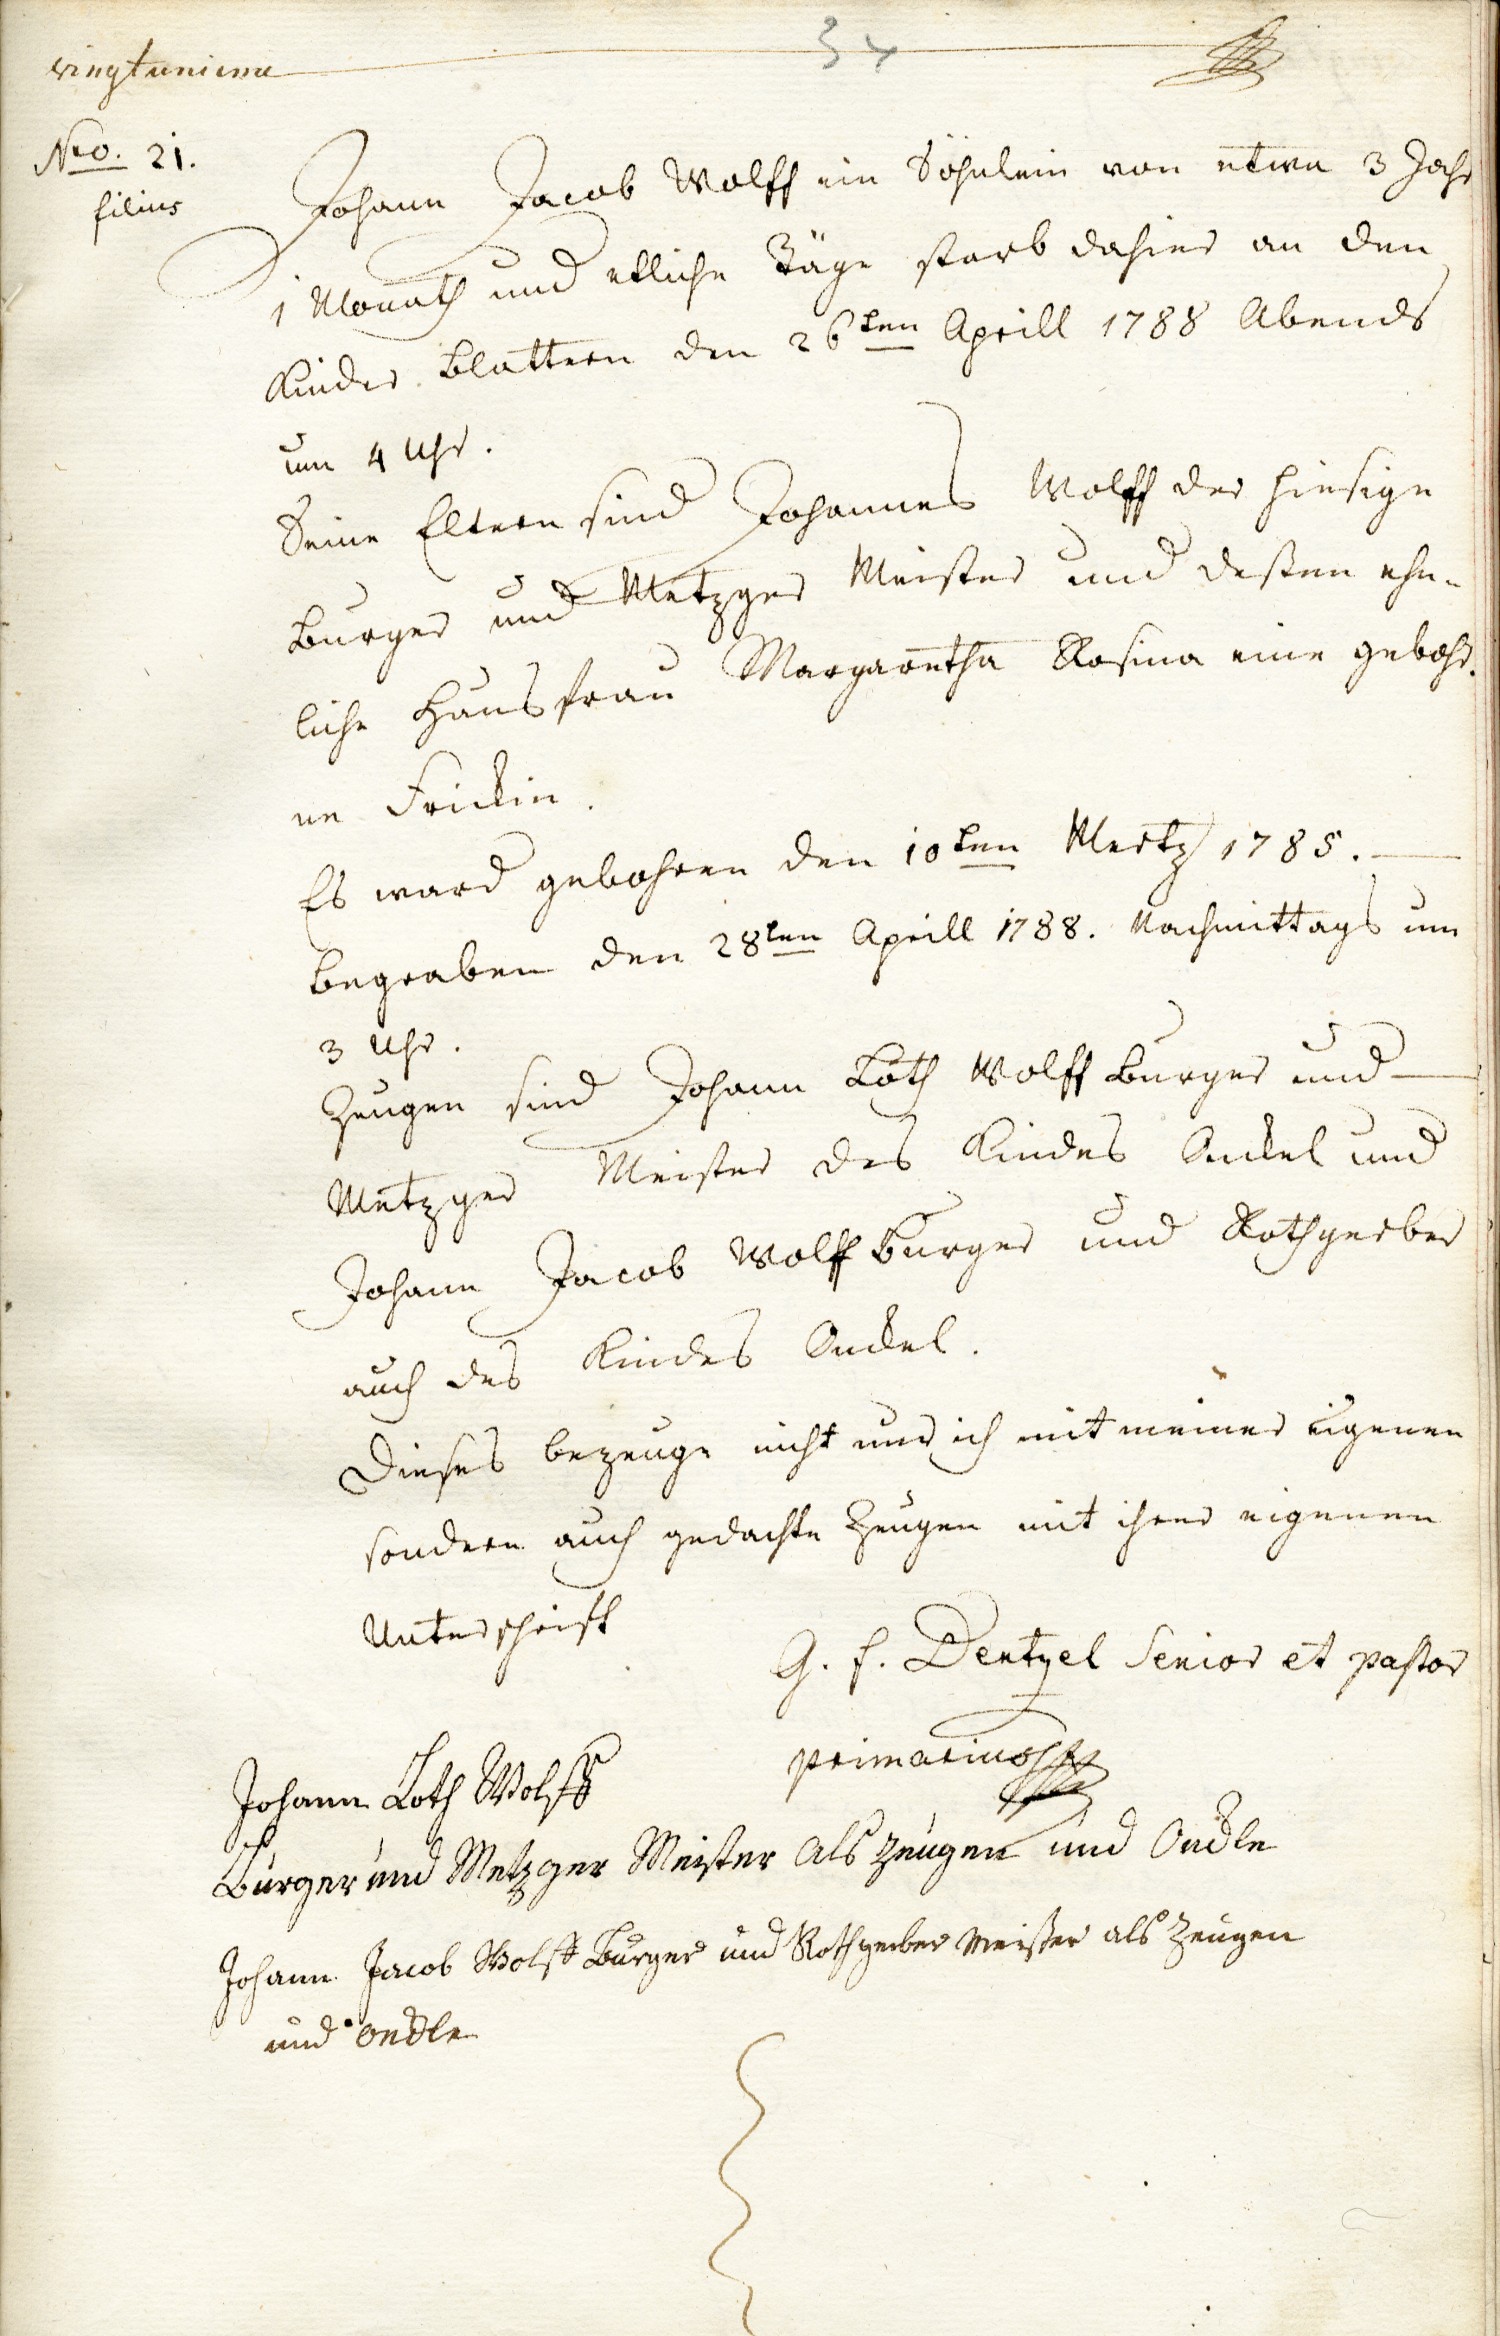 vingtunieme
34
Nro. 21.
filius
Johann Jacob Wolff ein Söhnlein von etwa 3 Jahr
1 Monath und etliche Täge starb dahier an den
Kinder Blattern den 26ten Aprill 1788 Abends
um 4 Uhr.
Seine Eltern sind Johannes Wolff der hiesige
Burger und Metzger Meister und deßen ehe-
liche Hausfrau Margaretha Rosina eine gebohr
ne Frickin.
Es ward gebohren den 10ten Mertz 1785.
Begraben den 28ten Aprill 1788. Nachmittags um
3 Uhr.
Zeugen sind Johann Loth Wolff Burger und
Metzger Meister des Kindes Onckel und
Johann Jacob Wolff Burger und Rothgerber
auch des Kindes Onckel.
Dieses bezeuge nicht nur ich mit meiner eigenen
sondern auch gedachte Zeugen mit ihrer eigenen
Unterschrift
G. f. Dentzel Senior et pastor
primarius
Johann Loth Wolff
Burger und Metzger Meister als zeugen und Onckle
Johann Jacob Wolff Burger und Rothgerber Meister als Zeugen
und Onckle